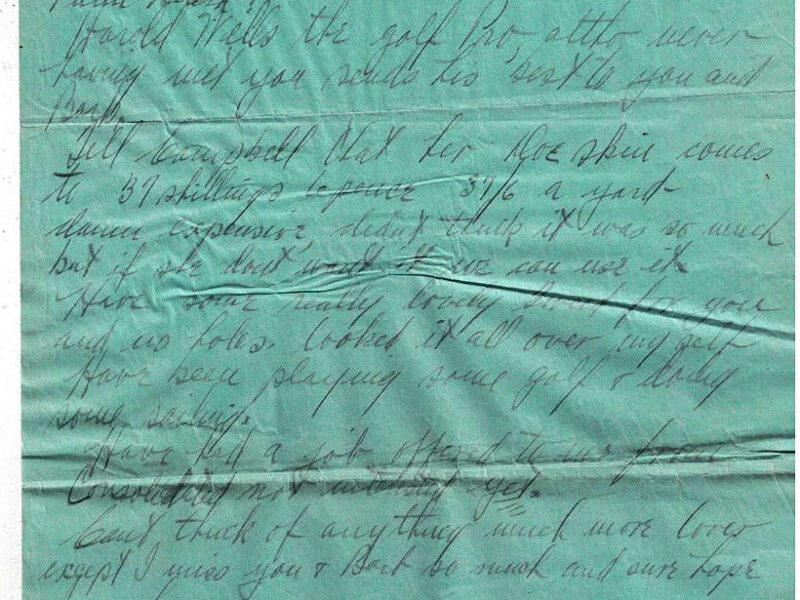 Harold Wells the golf Pro, altho never
having met you sends his best to you and
Barb.
Tell Campbell that her Doe skin comes
to 37 shillings 6 pence 37/6 a yard
damn expensive didnt think it was so much
but if she dont want it we can use it.
Have some really lovely for you
and no holes. looked it all over myself
Have been playing some golf & doing
some sailing.
Have had a job offered to me from
Consolidated not yet.
Cant think of anything much more lover
except I miss you & Barb so much and sure hope